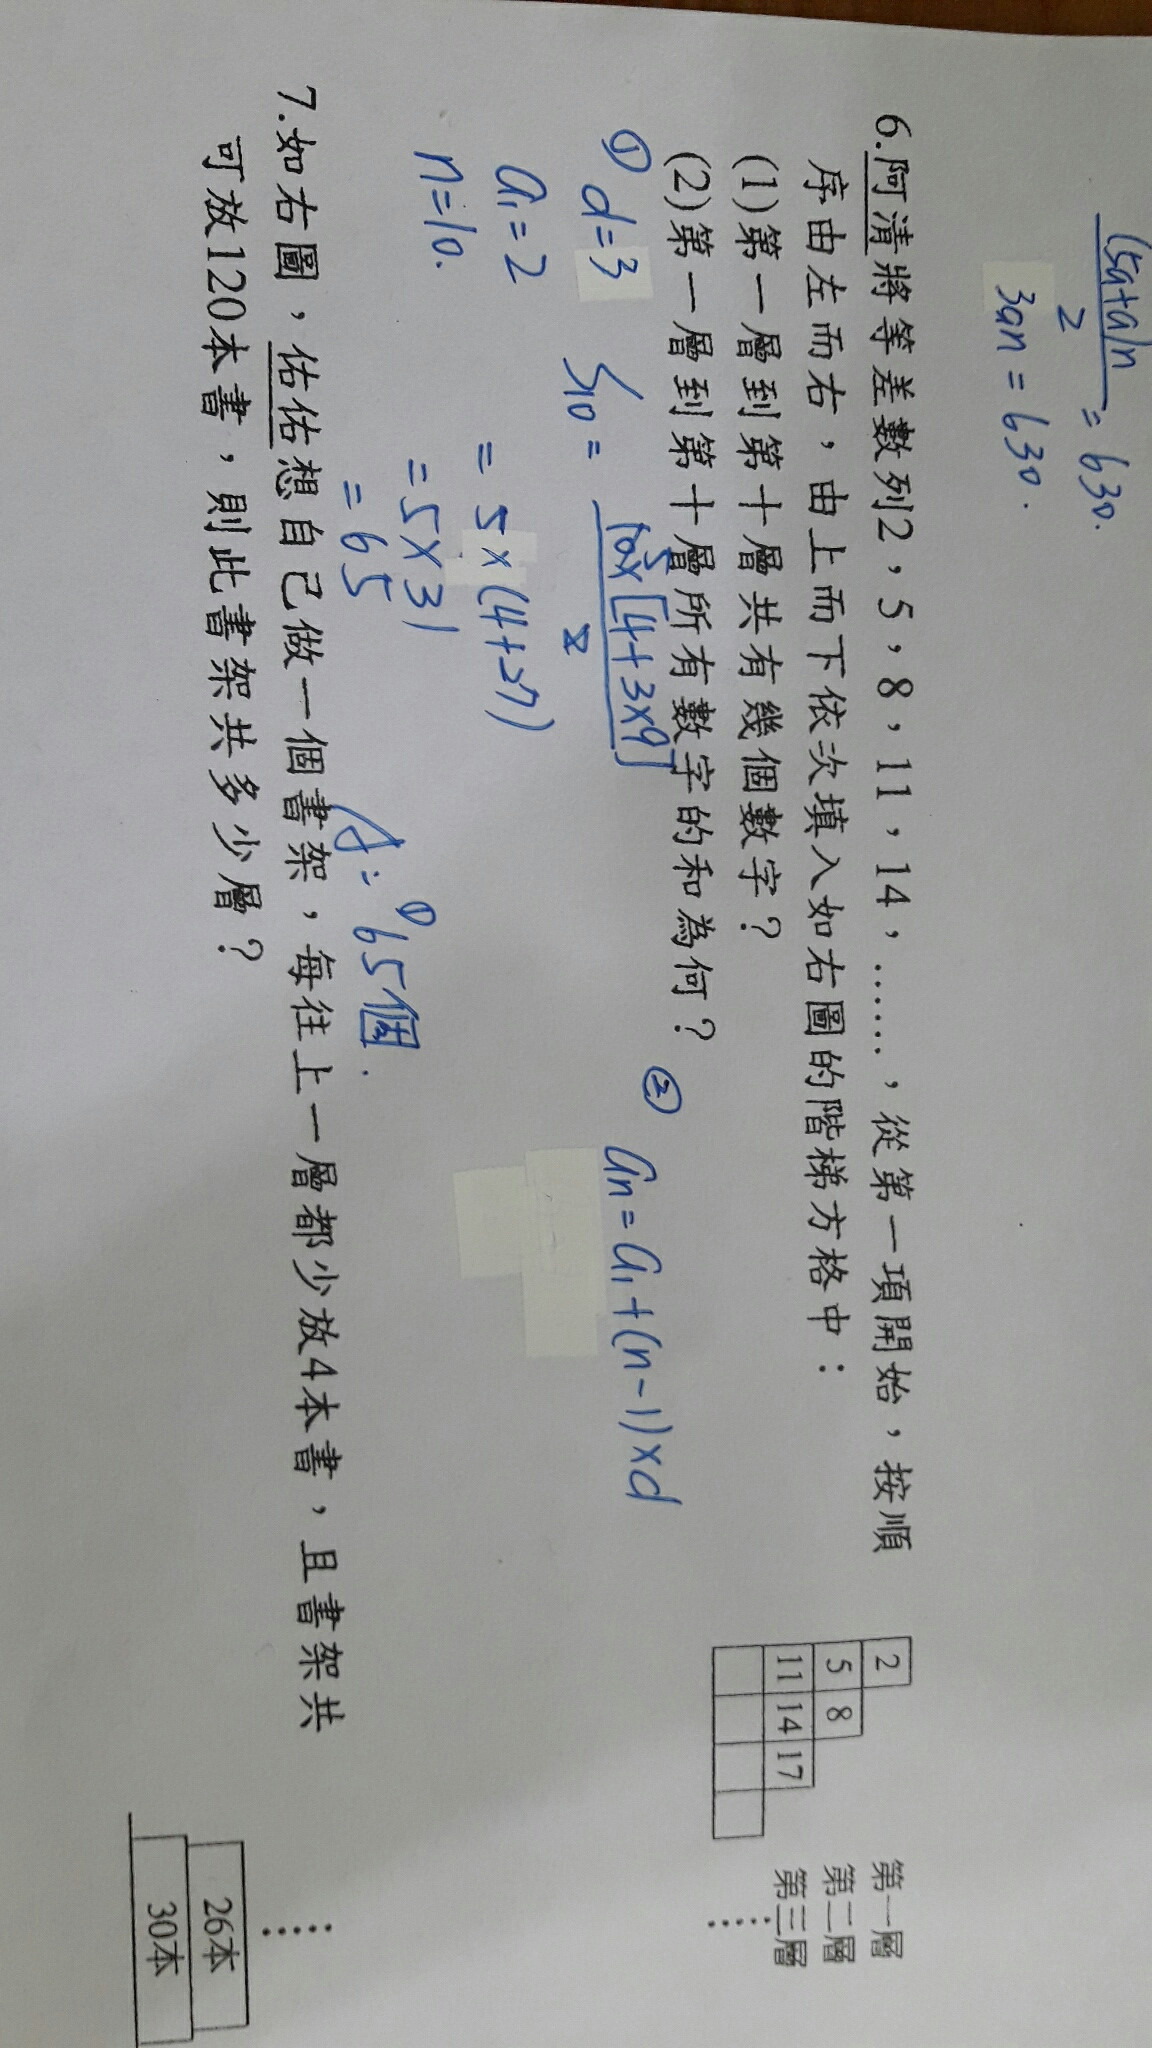 (5a+a)n
2
= 630.
3an = 630.
6.阿清將等差數列2，5，8，11，14，……，從第一項開始，按順
序由左而右，由上而下依次填入如右圖的階梯方格中：
(1)第一層到第十層共有幾個數字？
(2)第一層到第十層所有數字的和為何？
2
5 8
11 14 17
第一層
第二層
第三層
⋮
① d=3
a₁=2
n=10.
S₁₀ = 10×[4+3×9]
5
2
= 5×(4+27)
= 5×31
= 65
A: ① 65個.
② an = a₁+(n-1)×d
7.如右圖，佑佑想自己做一個書架，每往上一層都少放4本書，且書架共
可放120本書，則此書架共多少層？
⋮
26本
30本